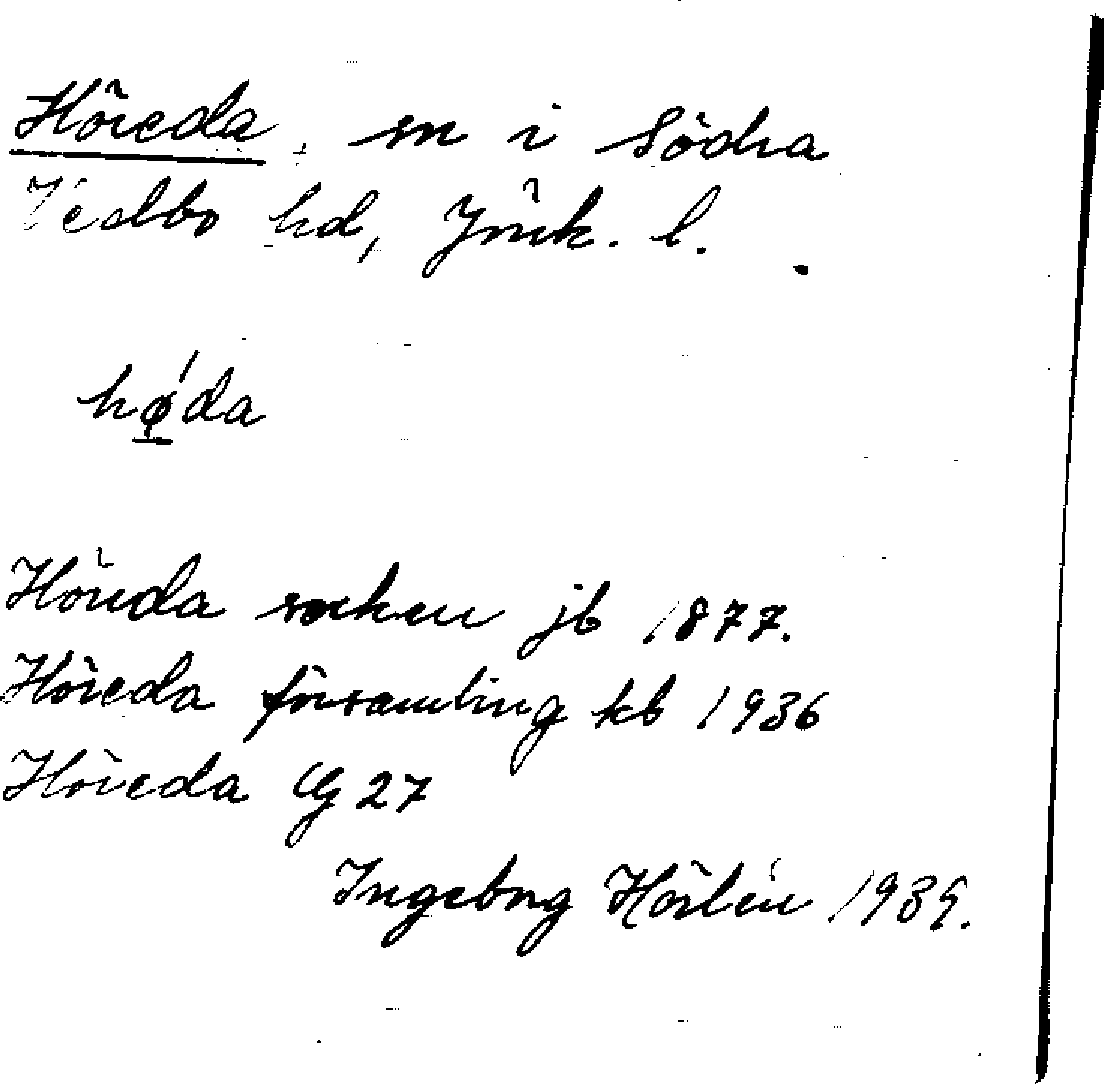 Höreda, sn i Södra
Vedbo hd, Jönk. l.
hǿ̲da
Höreda socken jb 1877.
Höreda församling kb 1936
Höreda GG 27
Ingeborg Hörlén 1939.